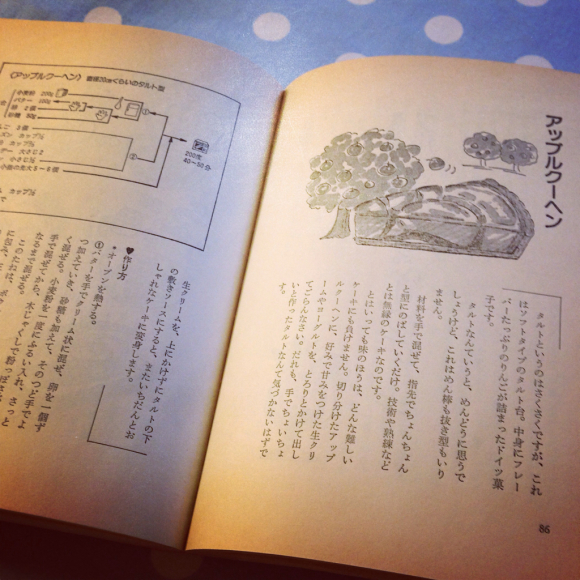 アップルクーヘン
タルトというのはさくさくですが、これ
はソフトタイプのタルト台。中身にフレー
バーたっぷりのりんごが詰まったドイツ菓
子です。
タルトなんていうと、めんどうに思うで
しょうけど、これはめん棒も抜き型もいり
ません。
材料を手で混ぜて、指先でちょんちょん
と型にのばしていくだけ。技術や熟練など
とは無縁のケーキなのです。
とはいっても味のほうは、どんな難しい
ケーキにも負けません。切り分けたアップ
ルクーヘンに、好みで甘みをつけた生クリ
ームやヨーグルトを、とろりとかけて出し
てごらんなさい。だれも、手でちょいちょ
いと作ったタルトなんて気づかないはずで
86
〈アップルクーヘン〉直径20cmぐらいのタルト型
小麦粉 200g
バター 100g
卵 2個
砂糖 80g
①
②
200度
40〜50分
生クリームを、上にかけずにタルトの下
の敷きソースにすると、またいちだんとお
しゃれなケーキに変身します。
♥作り方
・オーブンを熱する。
①バターを手でクリーム状に混ぜ、卵を一個ず
つ加えていき、砂糖も加えて、そのつど手でよ
く混ぜる。小麦粉を一度にふるい入れ、さっと
手で混ぜてから、木じゃくしで粉っぽさ
なるまで混ぜる。
このたねは、ボ
に包み、